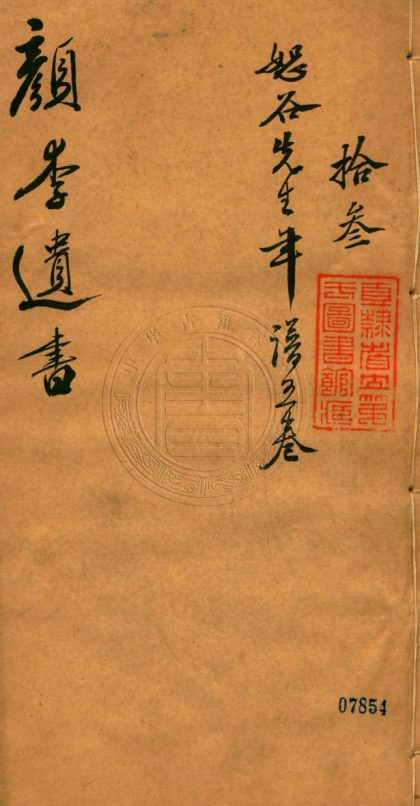 拾叁
恕谷先生年譜五卷
顏李遺書
直隸省立第
弌圖書館藏
07854